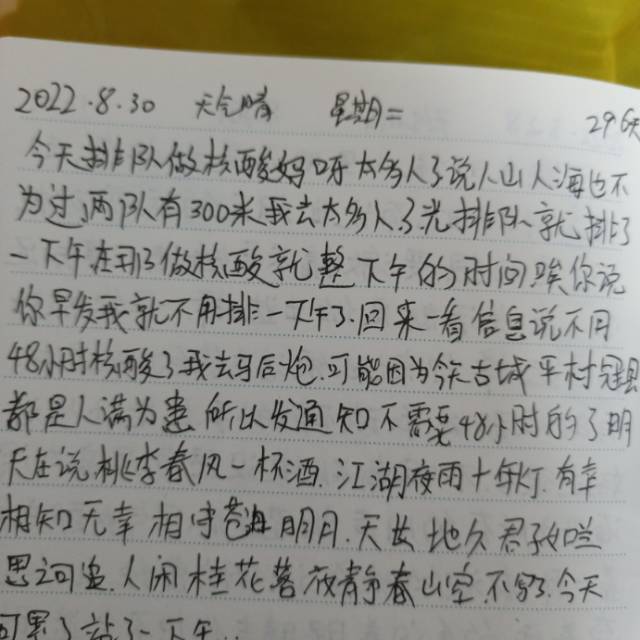 2022.8.30 天气晴 星期二 29好
今天排队做核酸妈呀太多人了说人山人海也不
为过,两队有300米我去太多人了光排队就排了
一下午在那了做核酸就整下午的时间唉你说
你早发我就不用排一下午了.回来一看信息说不用
48小时核酸了我去马后炮.可能因为今天古城平村冠县
都是人满为患所以发通知不需要48小时的了明
天在说桃李春风一杯酒.江湖夜雨十年灯.有幸
相知无幸相守苍海明月.天长地久君子
思河.人闲桂花落夜静春山空不多了.今天
可累了站了一下午..